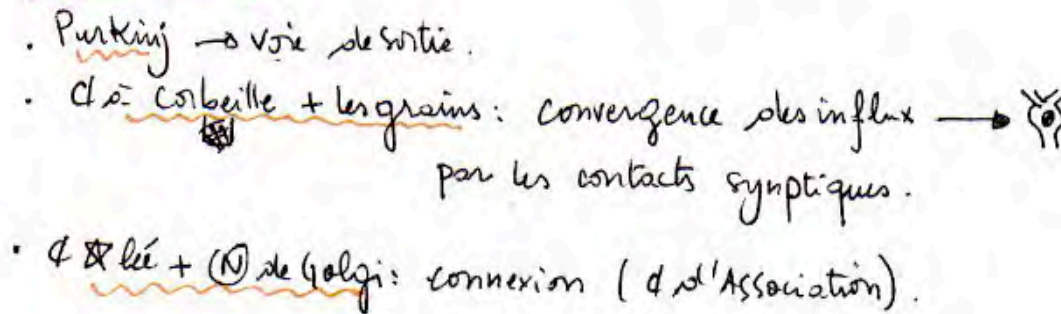 . Purkinj → voie de sortie.
. ¢ à corbeille + les grains : convergence des influx →
par les contacts synptiques.
. ¢ ☆ lée + Ⓝ de Golgi : connexion ( ¢ d'Association).